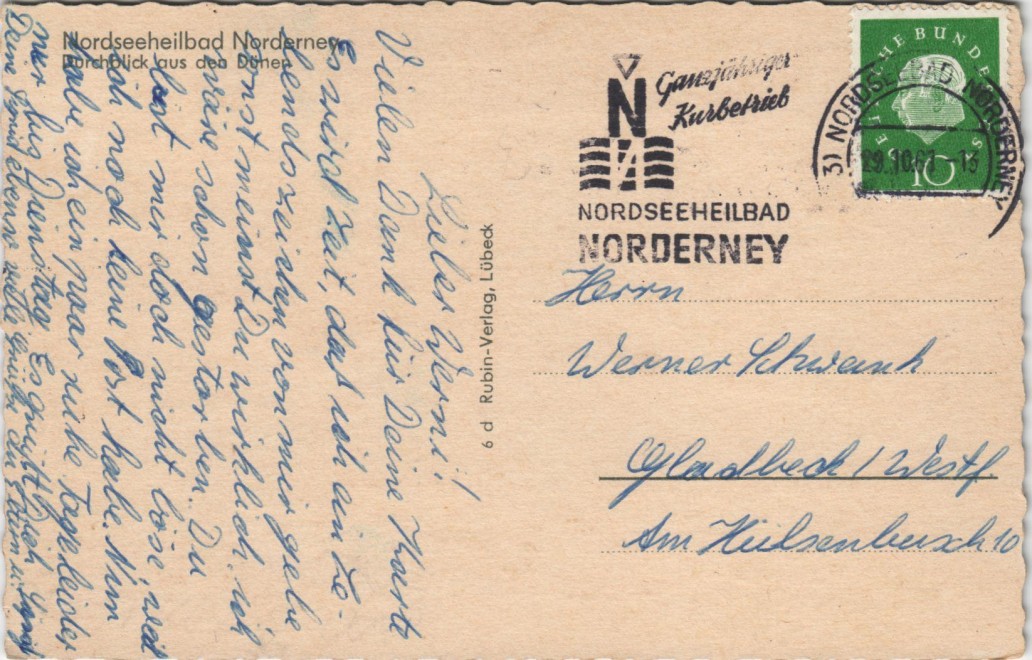 Nordseeheilbad Norderney
Durchblick aus den Dünen
Lieber Werni!
Vielen Dank für Deine Karte
Es wird Zeit, dat ich ein Le-
benszeichen von mir gebe
sonst meinst Du wirklich, ich
wäre schon gestorben. Du
bist mir doch nicht böse, weil
ich noch keine Post habe. Nun
habe ich ein paar ruhe Tage leider
nur bis Dienstag Es grüßt Dich
Deine
viele Grüße an
6 d Rubin-Verlag, Lübeck
N
Ganzjähriger
Kurbetrieb
NORDSEEHEILBAD
NORDERNEY
DEUTSCHE BUNDESPOST
10
NORDSEEBAD NORDERNEY
29.10.61-13
Herrn
Werner Schwank
Gladbeck / Westf
Am Hülsenbusch 10